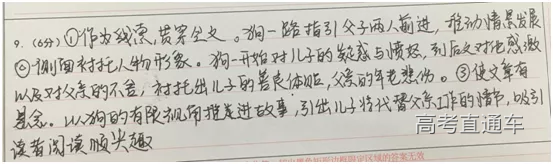 9. (6分) ①作为线索,贯穿全文。狗一路指引父子两人前进,推动情景发展
②侧面衬托人物形象。狗一开始对儿子的疑惑与愤怒,到后文对他感激
以及对父亲的不舍,衬托出儿子的善良体贴,父亲的年老悲伤。③使文章有
悬念。以狗的有限视角推进故事,引出儿子将代替父亲工作的情节,吸引
读者阅读顺兴趣
高考直通车